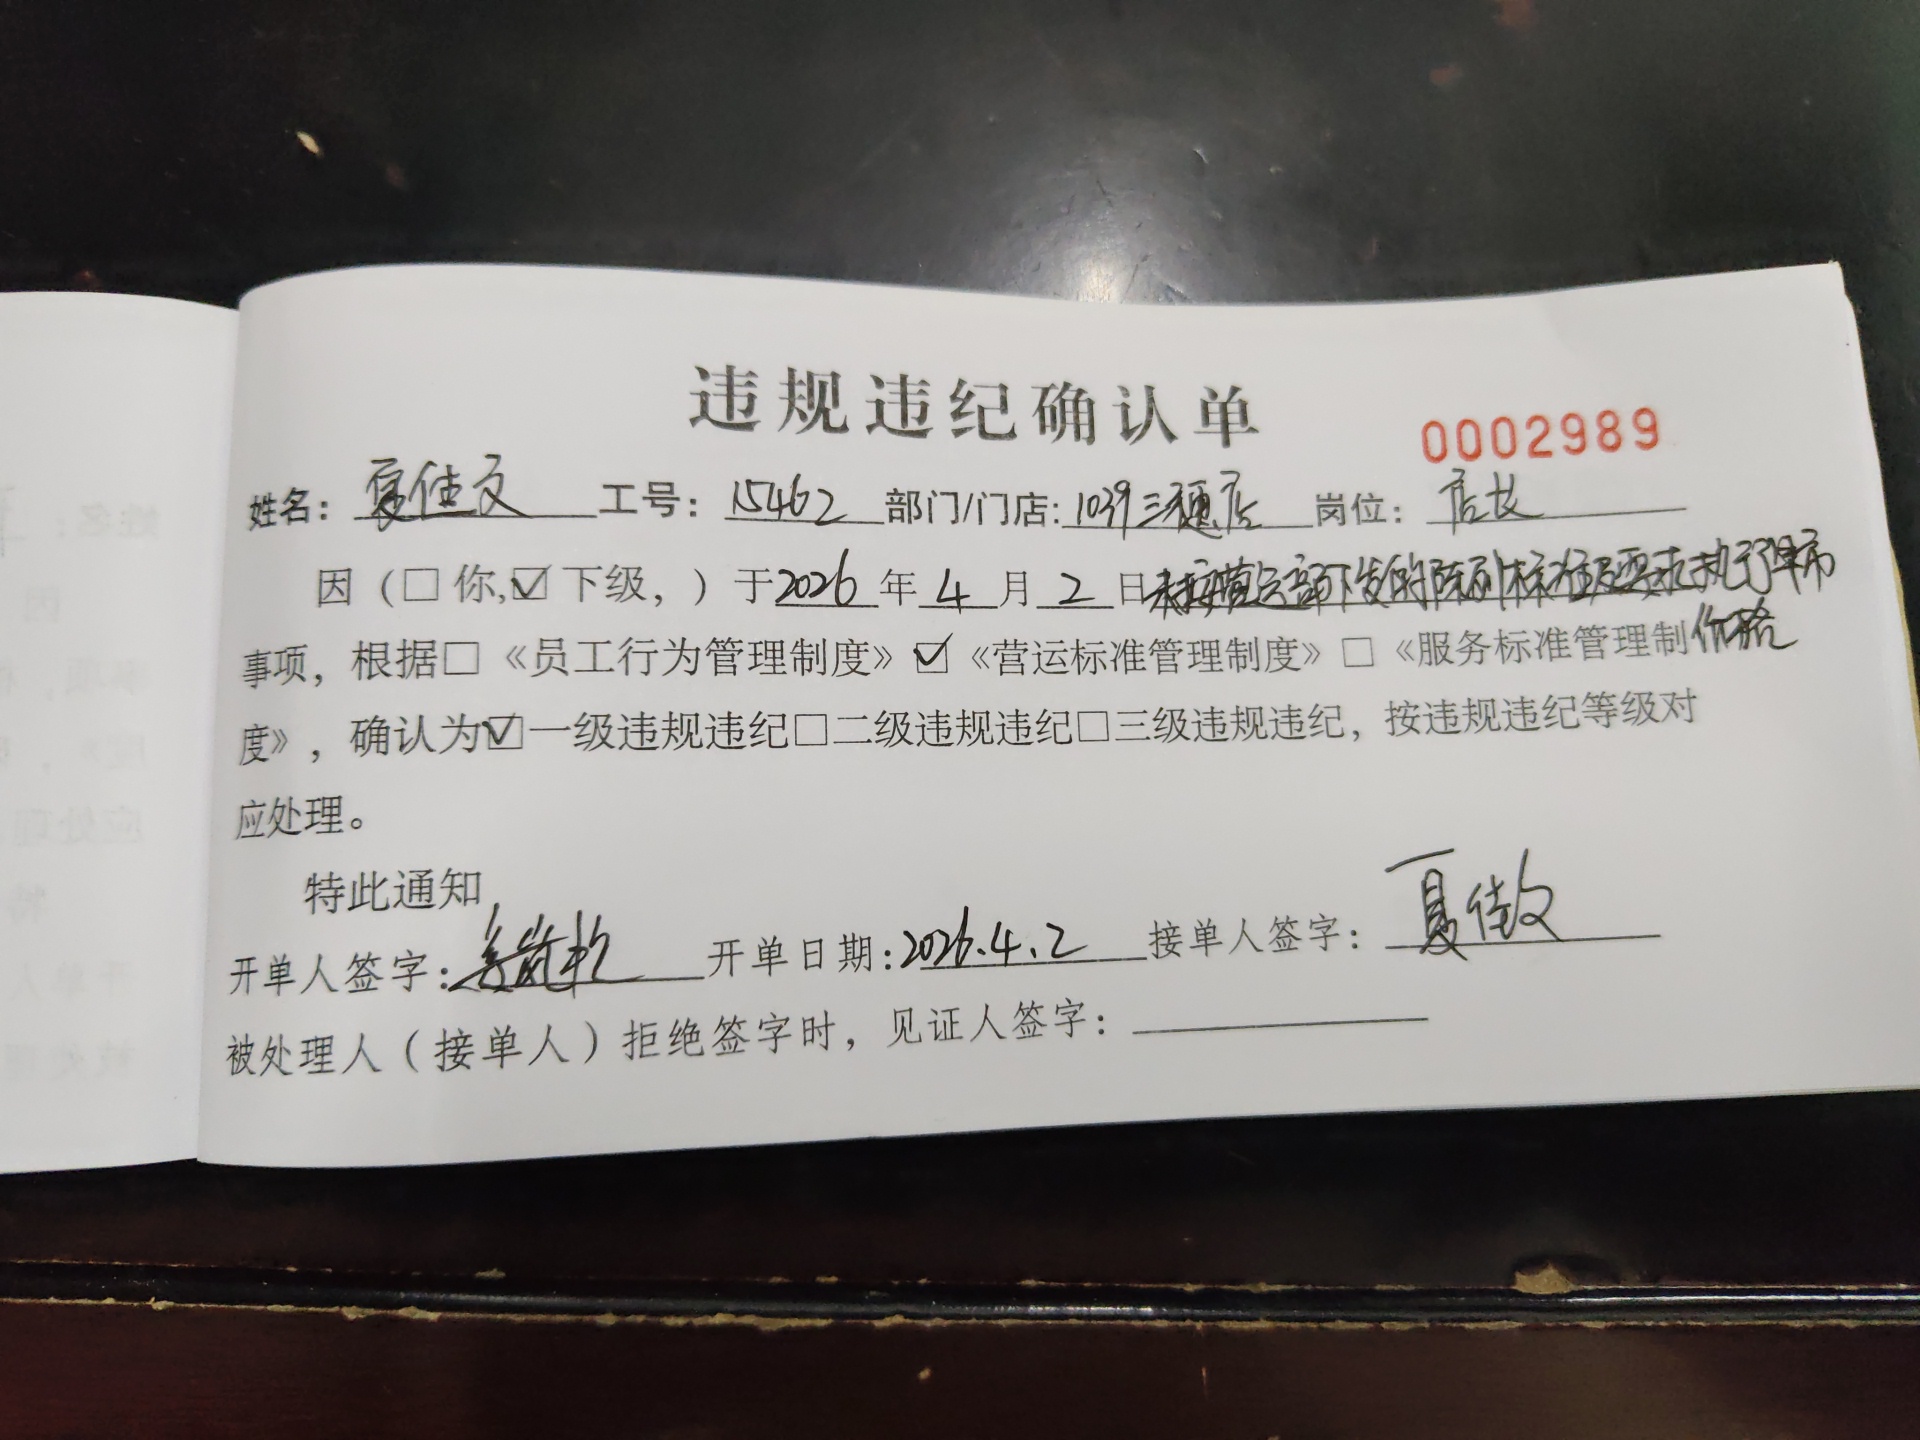 违规违纪确认单
0002989
姓名：夏佳文 工号：15462 部门/门店：1039三穗店 岗位：店长
因（□你，☑下级，）于2026年4月2日未按营运部下发的陈列标准及要求执行早市
事项，根据□《员工行为管理制度》☑《营运标准管理制度》□《服务标准管理制价格
度》，确认为☑一级违规违纪□二级违规违纪□三级违规违纪，按违规违纪等级对
应处理。
特此通知
开单人签字： 开单日期：2026.4.2 接单人签字：夏佳文
被处理人（接单人）拒绝签字时，见证人签字：